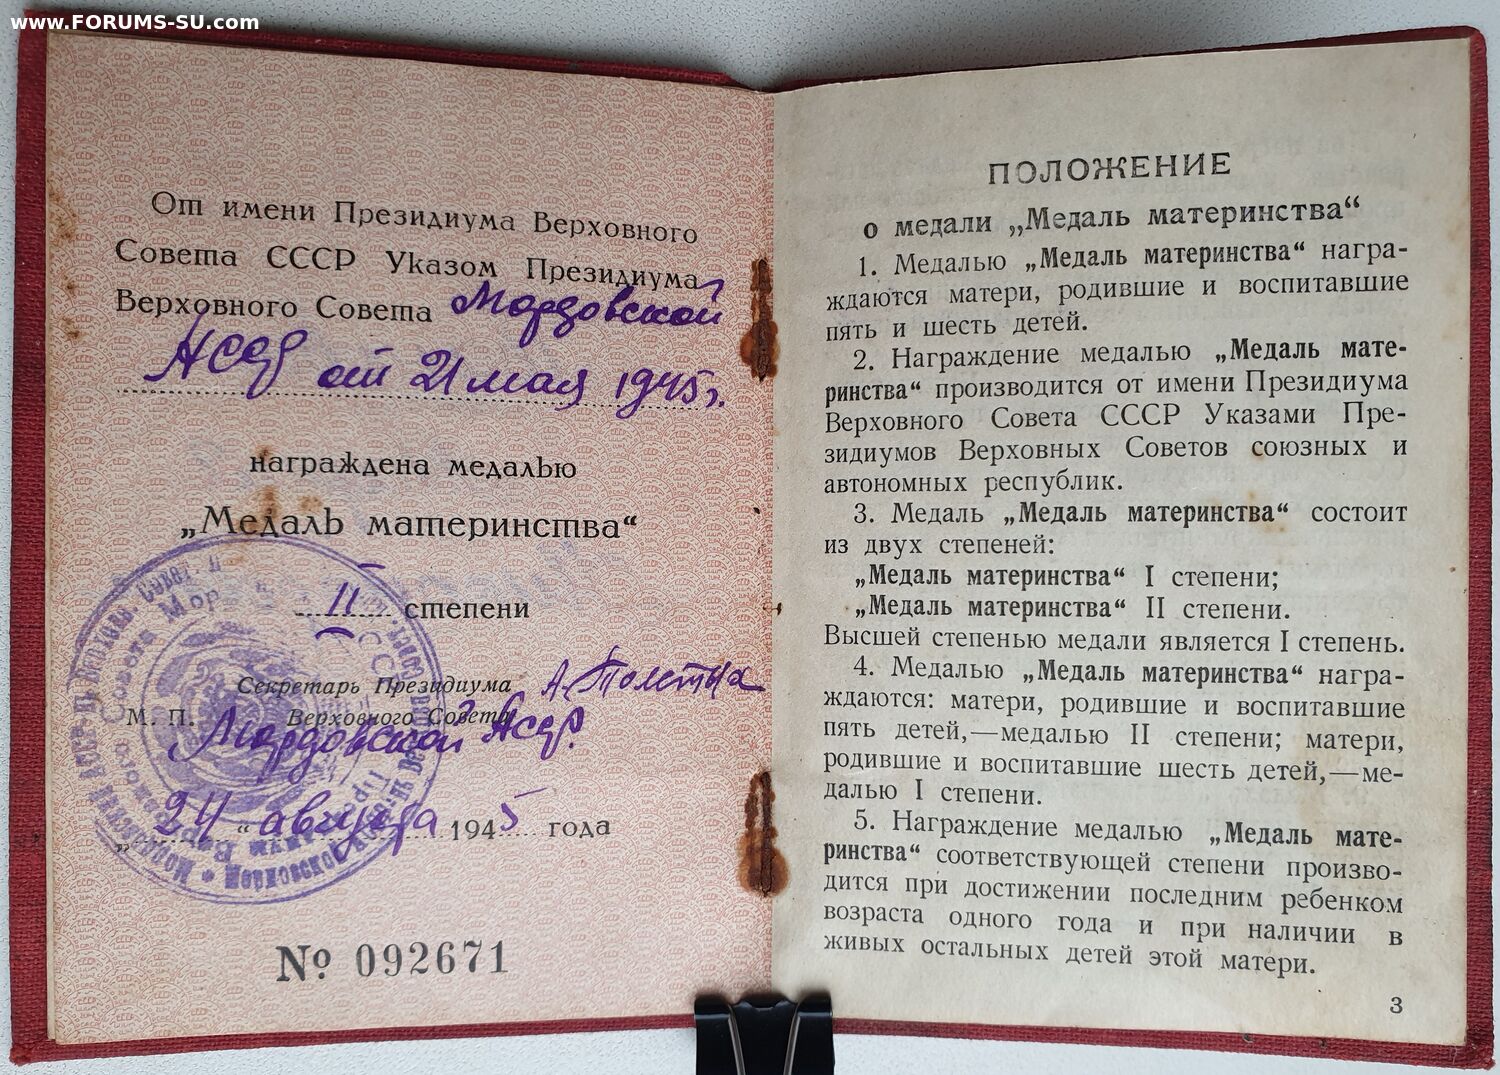 www.FORUMS-SU.com
От имени Президиума Верховного
Совета СССР Указом Президиума
Верховного Совета Мордовской
АССР от 21 мая 1945 г.
награждена медалью
„Медаль материнства“
II степени
Секретарь Президиума А. Толстых
М. П. Верховного Совета
Мордовской АССР.
„24“ августа 1945 года
№ 092671
ПОЛОЖЕНИЕ
о медали „Медаль материнства“
1. Медалью „Медаль материнства“ награ-
ждаются матери, родившие и воспитавшие
пять и шесть детей.
2. Награждение медалью „Медаль мате-
ринства“ производится от имени Президиума
Верховного Совета СССР Указами Пре-
зидиумов Верховных Советов союзных и
автономных республик.
3. Медаль „Медаль материнства“ состоит
из двух степеней:
„Медаль материнства“ I степени;
„Медаль материнства“ II степени.
Высшей степенью медали является I степень.
4. Медалью „Медаль материнства“ награ-
ждаются: матери, родившие и воспитавшие
пять детей,—медалью II степени; матери,
родившие и воспитавшие шесть детей,—ме-
далью I степени.
5. Награждение медалью „Медаль мате-
ринства“ соответствующей степени произво-
дится при достижении последним ребенком
возраста одного года и при наличии в
живых остальных детей этой матери.
3